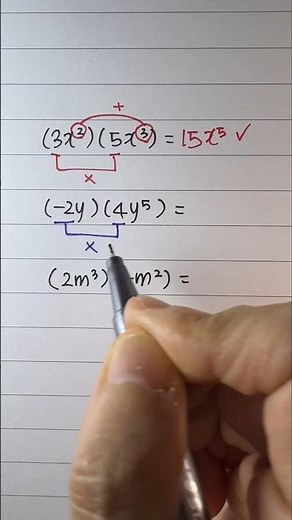 +
(3x²)(5x³) = 15x⁵ ✓
x
(-2y)(4y⁵) =
x
(2m³) -m²) =